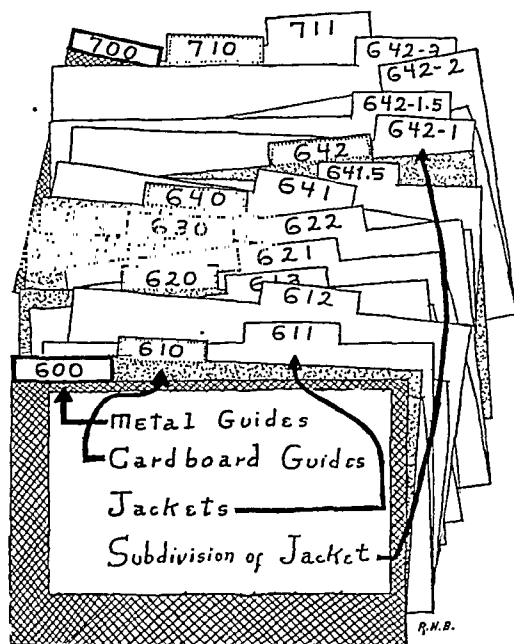 711
700
710
642-3
642-2
642-1.5
642-1
642
641.5
640
641
630
622
621
620
613
612
611
610
600
Metal Guides
Cardboard Guides
Jackets
Subdivision of Jacket
R.H.B.